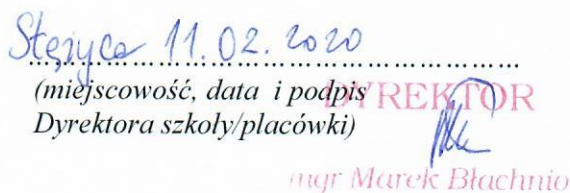 Stężyca 11.02.2020
(miejscowość, data i podpis
DYREKTOR
Dyrektora szkoły/placówki)
mgr Marek Błachnio